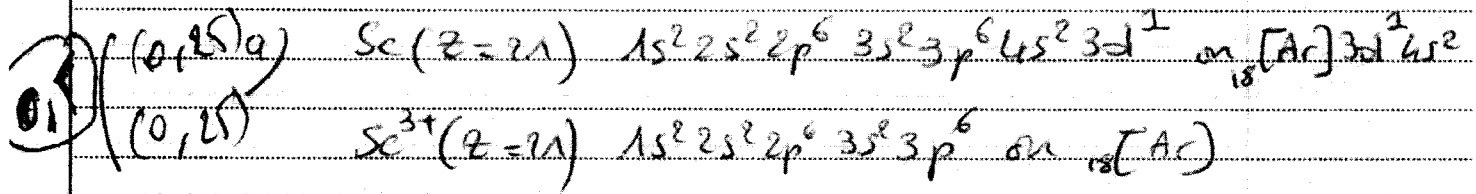 (0,25) a) Sc (Z=21) 1s² 2s² 2p⁶ 3s² 3p⁶ 4s² 3d¹ ou ₁₈[Ar] 3d¹ 4s²
(0,25) Sc³⁺ (Z=21) 1s² 2s² 2p⁶ 3s² 3p⁶ ou ₁₈[Ar]